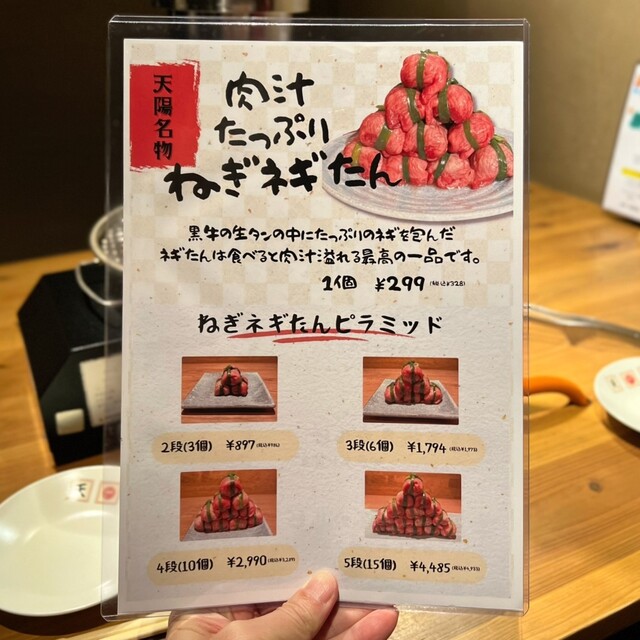 天陽名物
肉汁
たっぷり
ねぎネギたん
黒牛の生タンの中にたっぷりのネギを包んだ
ネギたんは食べると肉汁溢れる最高の一品です。
1個 ¥299(税込¥328)
ねぎネギたんピラミッド
2段(3個) ¥897(税込¥986)
3段(6個) ¥1,794(税込¥1,973)
4段(10個) ¥2,990(税込¥3,289)
5段(15個) ¥4,485(税込¥4,933)